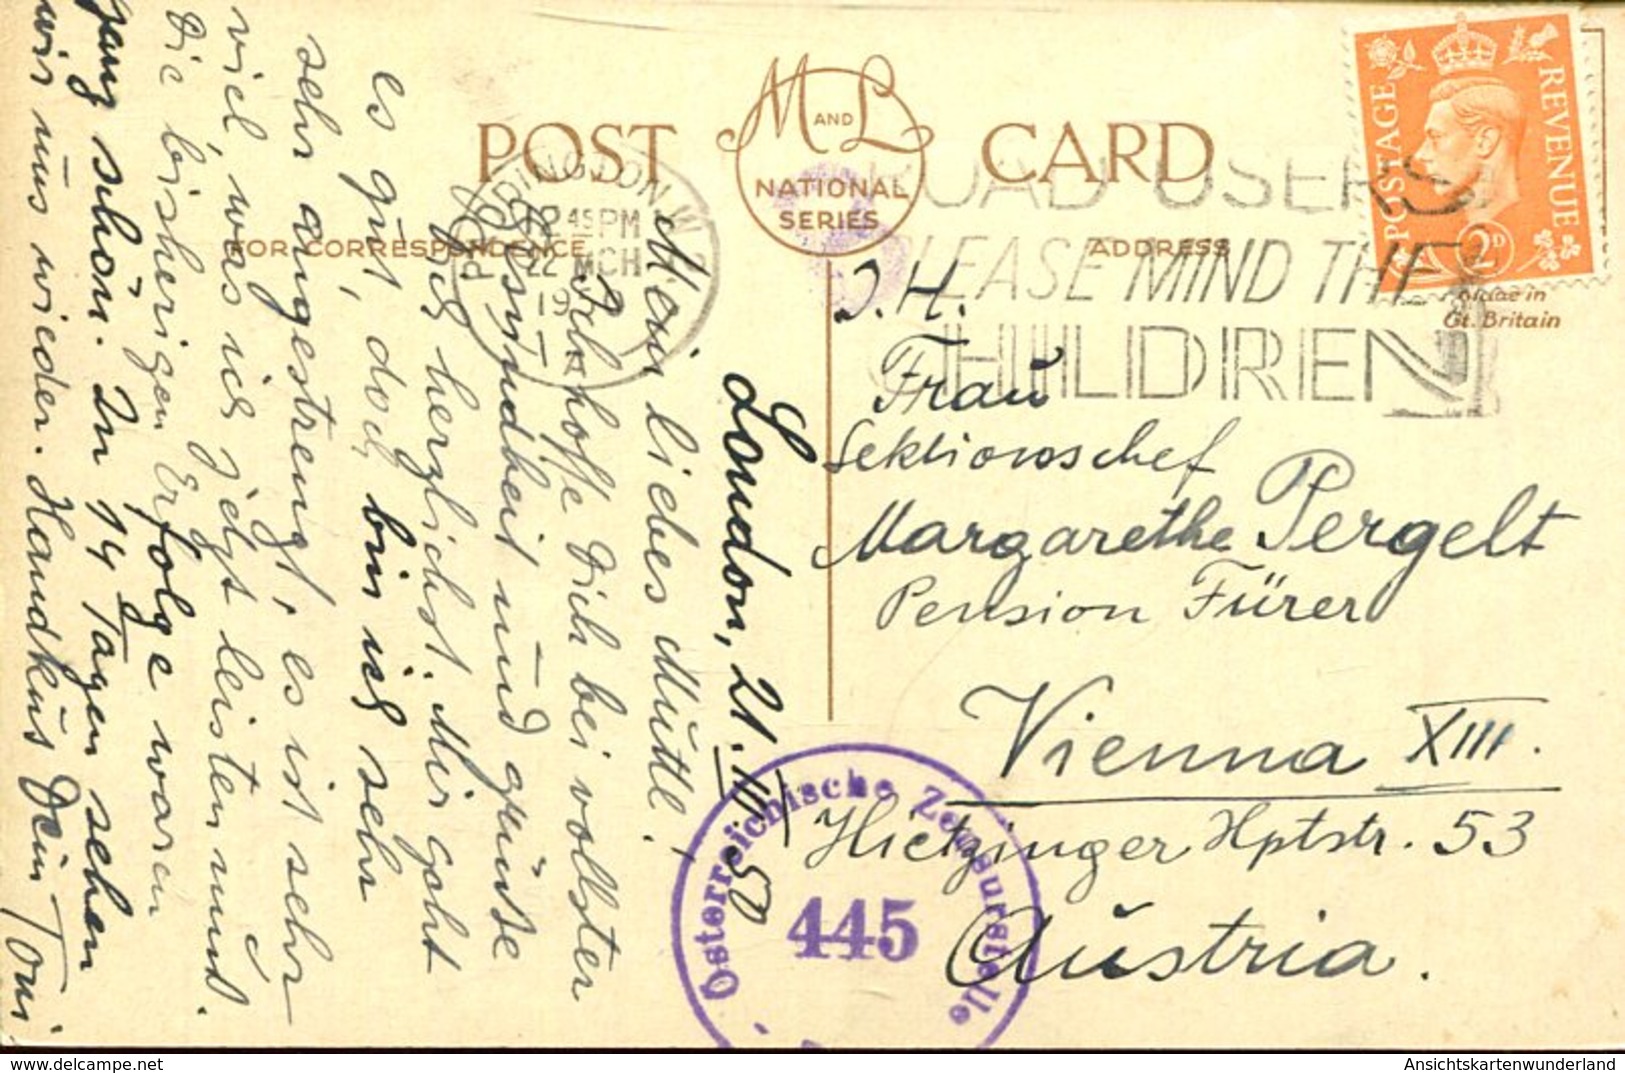 POST CARD
M AND L
NATIONAL
SERIES
FOR CORRESPONDENCE
ADDRESS
POSTAGE REVENUE
2D
Made in
Gt. Britain
PADDINGTON W.2
12 45 PM
22 MCH
19
ROAD USERS
PLEASE MIND THE
CHILDREN
London, 21.III.50
Mein liebes Muttl!
Ich hoffe Dich bei vollster
Gesundheit und grüße
Dich herzlichst. Mir geht
es gut, doch bin ich sehr
sehr angestrengt, es ist sehr
viel, was ich jetzt leisten muß.
Die bisherigen Erfolge waren
ganz schön. In 14 Tagen sehen
wir uns wieder. Handkuss Dein Toni.
I. H.
Frau
Sektionschef
Margarethe Pergelt
Pension Fürer
Vienna XIII.
Hietzinger Hptstr. 53
Austria.
Österreichische Zensurstelle
445
AnsichtsKartenwunderland